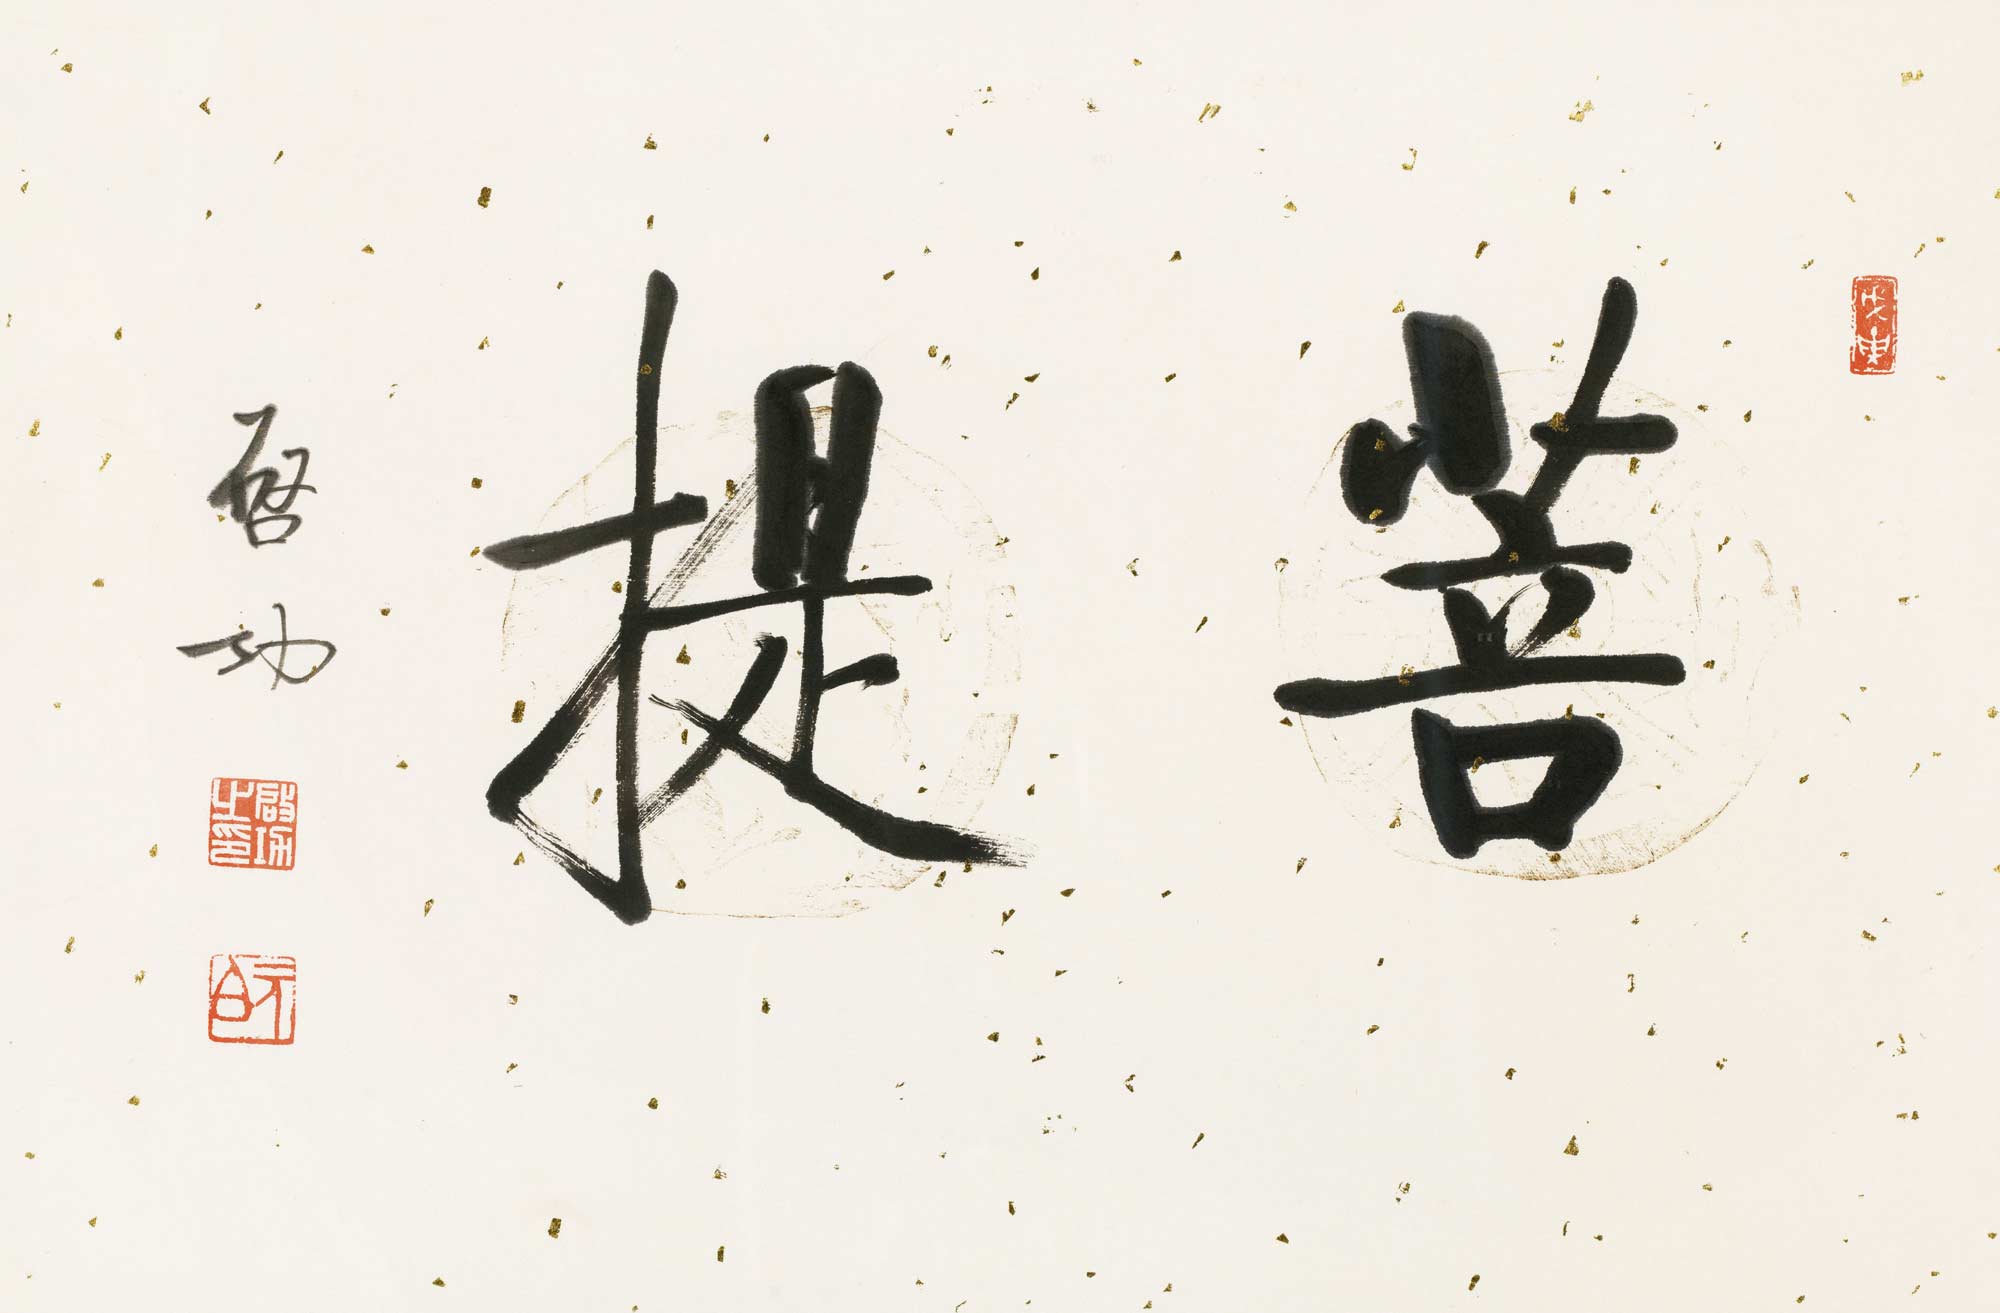 菩提
启功
启功之印
元白